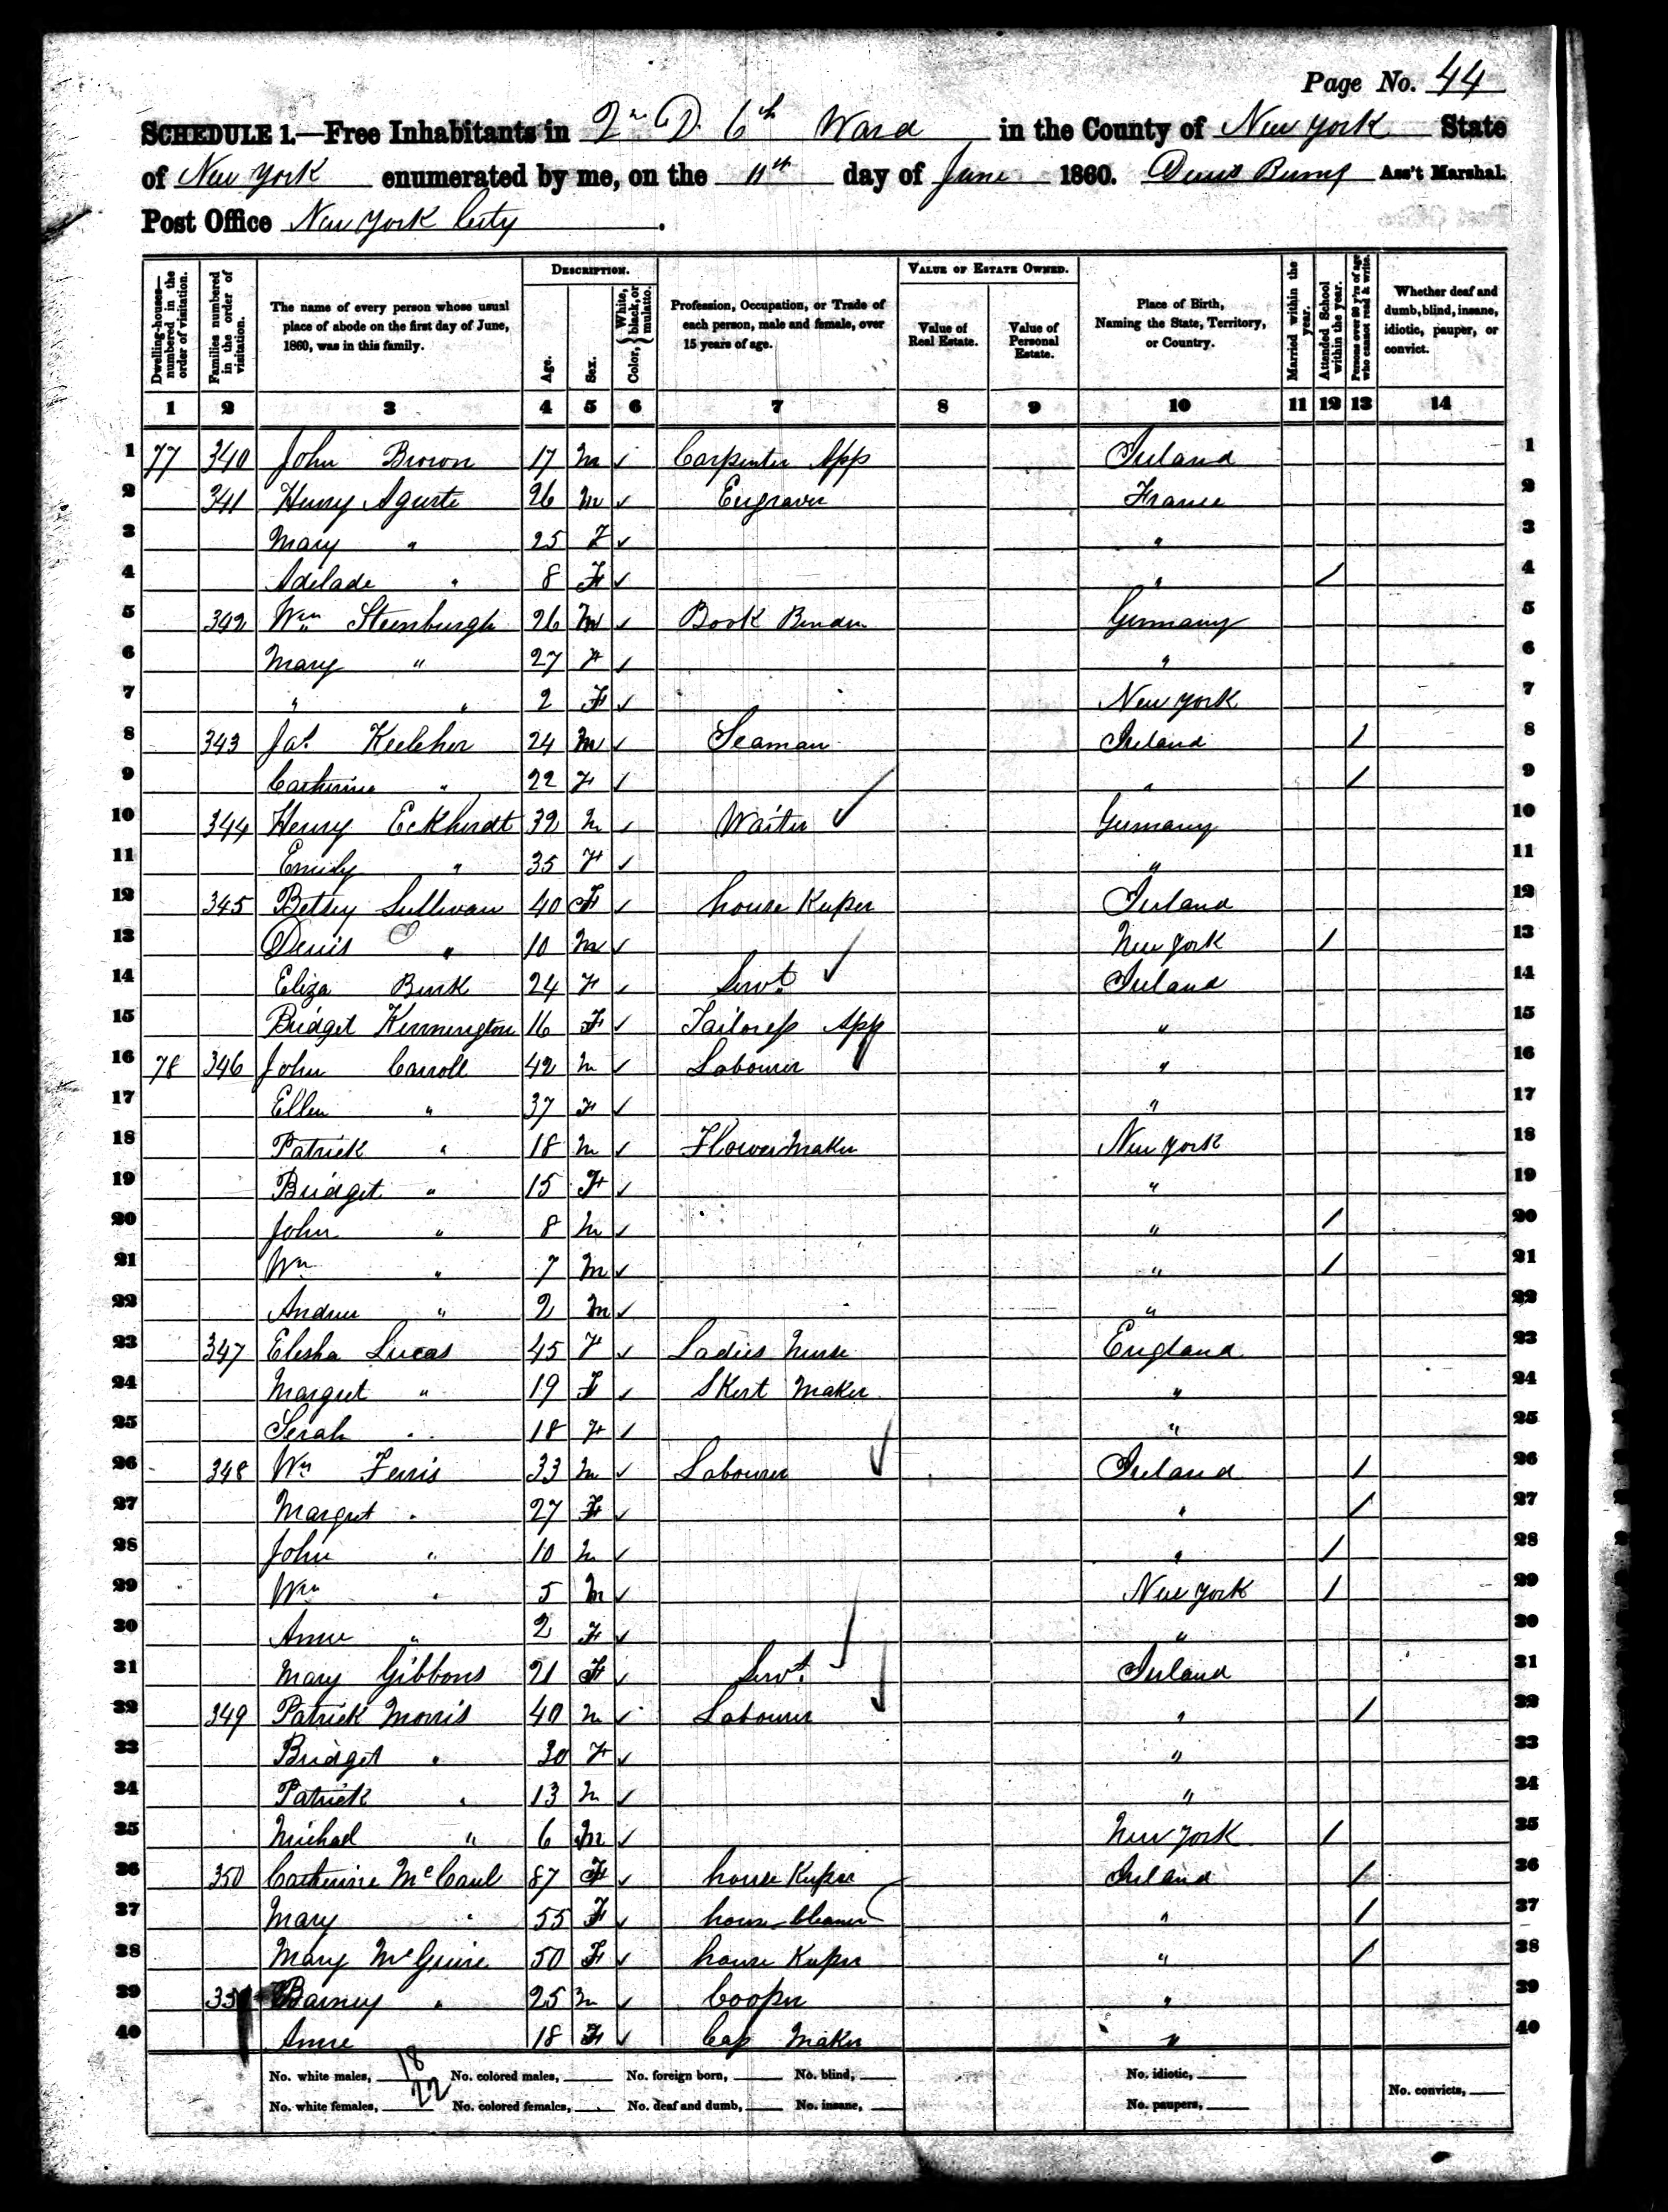 Page No. 44
SCHEDULE 1.—Free Inhabitants in 2nd D. 6th Ward in the County of New York State
of New York enumerated by me, on the 11th day of June 1860. Ass't Marshal.
Post Office New York City.
DESCRIPTION. VALUE OF ESTATE OWNED.
Dwelling-houses—numbered in the order of visitation.
Families numbered in the order of visitation.
The name of every person whose usual place of abode on the first day of June, 1860, was in this family.
Age.
Sex.
Color, { White, black, or mulatto.
Profession, Occupation, or Trade of each person, male and female, over 15 years of age.
Value of Real Estate.
Value of Personal Estate.
Place of Birth, Naming the State, Territory, or Country.
Married within the year.
Attended School within the year.
Persons over 20 y'rs of age who cannot read & write.
Whether deaf and dumb, blind, insane, idiotic, pauper, or convict.
1 2 3 4 5 6 7 8 9 10 11 12 13 14
1 77 340 John Brown 17 m ✓ Carpenter App Ireland 1
2 341 Henry Agurte 26 m ✓ Engraver France 2
3 Mary " 25 F ✓ " 3
4 Adelade " 8 F ✓ " / 4
5 342 Wm Steinburgh 26 m ✓ Book Binder Germany 5
6 Mary " 27 F ✓ " 6
7 " " 2 F ✓ New York 7
8 343 Jas. Keelcher 24 m ✓ Seaman Ireland / 8
9 Catherine " 22 F ✓ " / 9
10 344 Henry Eckherdt 32 m ✓ Waiter ✓ Germany 10
11 Emily " 35 F ✓ " 11
12 345 Betsey Sullivan 40 F ✓ house Keeper Ireland 12
13 Denis " 10 m ✓ New York / 13
14 Eliza Burk 24 F ✓ Servt. ✓ Ireland 14
15 Bridget Kinnington 16 F ✓ Tailoress App " 15
16 78 346 John Carroll 42 m ✓ Labourer ✓ " 16
17 Ellen " 37 F ✓ " 17
18 Patrick " 18 m ✓ Flower maker New York 18
19 Bridget " 15 F ✓ " 19
20 John " 8 m ✓ " / 20
21 Wm " 7 m ✓ " / 21
22 Andrew " 2 m ✓ " 22
23 347 Elesha Lucas 45 F ✓ Ladies Nurse England 23
24 Margret " 19 F ✓ Skert Maker " 24
25 Serah " 18 F ✓ " 25
26 348 Wm Ferris 33 m ✓ Labourer ✓ Ireland / 26
27 Margret " 27 F ✓ " / 27
28 John " 10 m ✓ " / 28
29 Wm " 5 m ✓ New York / 29
30 Anne " 2 F ✓ " 30
31 Mary Gibbons 21 F ✓ Servt. ✓ Ireland 31
32 349 Patrick Morris 40 m ✓ Labourer ✓ " / 32
33 Bridget " 30 F ✓ " 33
34 Patrick " 13 m ✓ " 34
35 Michael " 6 m ✓ New York / 35
36 350 Catherine McCaul 87 F ✓ house Keeper Ireland / 36
37 Mary " 55 F ✓ house cleaner " / 37
38 Mary McGuire 50 F ✓ house Keeper " / 38
39 351 Barney " 25 m ✓ Cooper " 39
40 Anne 18 F ✓ Cap Maker " 40
No. white males, 18 No. colored males, No. foreign born, No. blind, No. idiotic, No. convicts,
No. white females, 22 No. colored females, No. deaf and dumb, No. insane, No. paupers,